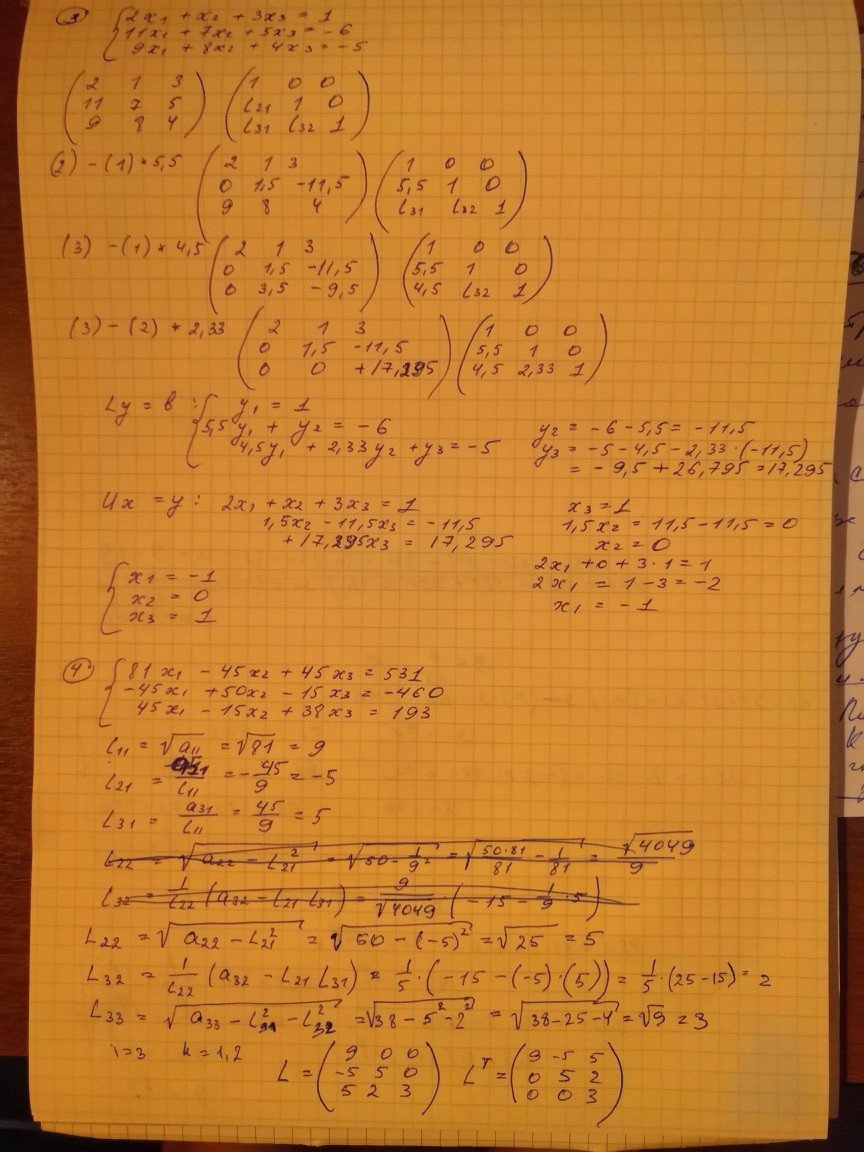 ③ { 2x₁ + x₂ + 3x₃ = 1
11x₁ + 7x₂ + 5x₃ = -6
9x₁ + 8x₂ + 4x₃ = -5
( 2 1 3 ) ( 1 0 0 )
( 11 7 5 ) ( L21 1 0 )
( 9 8 4 ) ( L31 L32 1 )
(2) - (1) * 5,5 ( 2 1 3 ) ( 1 0 0 )
( 0 1,5 -11,5 ) ( 5,5 1 0 )
( 9 8 4 ) ( L31 L32 1 )
(3) - (1) * 4,5 ( 2 1 3 ) ( 1 0 0 )
( 0 1,5 -11,5 ) ( 5,5 1 0 )
( 0 3,5 -9,5 ) ( 4,5 L32 1 )
(3) - (2) * 2,33 ( 2 1 3 ) ( 1 0 0 )
( 0 1,5 -11,5 ) ( 5,5 1 0 )
( 0 0 +17,295 ) ( 4,5 2,33 1 )
Ly = b : { y₁ = 1
5,5y₁ + y₂ = -6
4,5y₁ + 2,33y₂ + y₃ = -5
y₂ = -6 - 5,5 = -11,5
y₃ = -5 - 4,5 - 2,33·(-11,5)
= -9,5 + 26,795 = 17,295
Ux = y : 2x₁ + x₂ + 3x₃ = 1
1,5x₂ - 11,5x₃ = -11,5
+17,295x₃ = 17,295
x₃ = 1
1,5x₂ = 11,5 - 11,5 = 0
x₂ = 0
2x₁ + 0 + 3·1 = 1
2x₁ = 1 - 3 = -2
x₁ = -1
{ x₁ = -1
x₂ = 0
x₃ = 1
④ { 81x₁ - 45x₂ + 45x₃ = 531
-45x₁ + 50x₂ - 15x₃ = -460
45x₁ - 15x₂ + 38x₃ = 193
L11 = √a11 = √81 = 9
L21 = a21/L11 = -45/9 = -5
L31 = a31/L11 = 45/9 = 5
L22 = √(a22 - L21²) = √(50 - 1/9²) = √(50·81/81 - 1/81) = √4049/9
L32 = 1/L22 (a32 - L21 L31) = 9/√4049 · (-15 - 1/9 · 5)
L22 = √(a22 - L21²) = √(50 - (-5)²) = √25 = 5
L32 = 1/L22 (a32 - L21 L31) = 1/5 · (-15 - (-5)·(5)) = 1/5 · (25-15) = 2
L33 = √(a33 - L31² - L32²) = √(38 - 5² - 2²) = √(38-25-4) = √9 = 3
i=3 k=1,2
L = ( 9 0 0 ) Lᵀ = ( 9 -5 5 )
( -5 5 0 ) ( 0 5 2 )
( 5 2 3 ) ( 0 0 3 )